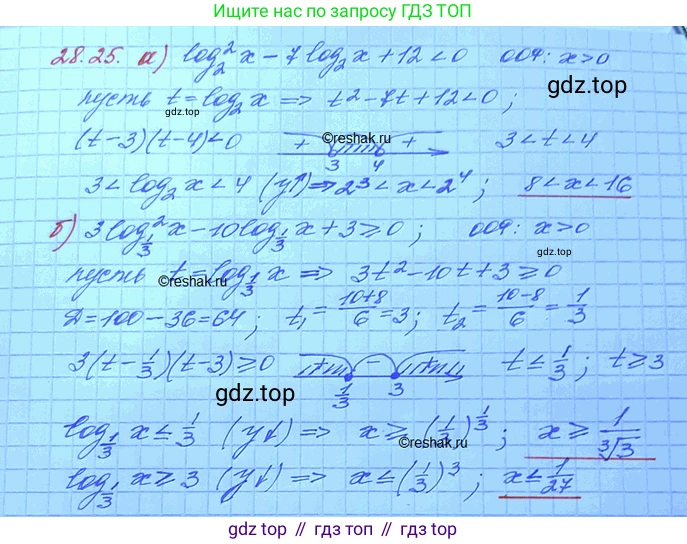 Ищите нас по запросу ГДЗ ТОП
28.25. а) log₂²x − 7log₂x + 12 < 0   ООЧ: x>0
gdz.top
пусть t = log₂x => t² − 7t + 12 < 0 ;
(t−3)(t−4)<0   + ©reshak.ru +   3 < t < 4
3   4
3 < log₂x < 4 (y↑) => 2³ < x < 2⁴ ;   8 < x < 16
б) 3log²_{1/3} x − 10log_{1/3} x + 3 ≥ 0 ;   ООЧ: x>0
gdz.top
пусть t = log_{1/3} x => 3t² − 10t + 3 ≥ 0
©reshak.ru
Д = 100 − 36 = 64 ;   t₁ = (10+8)/6 = 3 ;   t₂ = (10−8)/6 = 1/3
3(t − 1/3)(t−3) ≥ 0   + − +   t ≤ 1/3 ;   t ≥ 3
1/3   3
gdz.top
log_{1/3} x ≤ 1/3 (y↓) => x ≥ (1/3)^{1/3} ;   x ≥ 1/∛3
©reshak.ru
log_{1/3} x ≥ 3 (y↓) => x ≤ (1/3)³ ;   x ≤ 1/27
gdz.top // гдз.топ // гдз.top